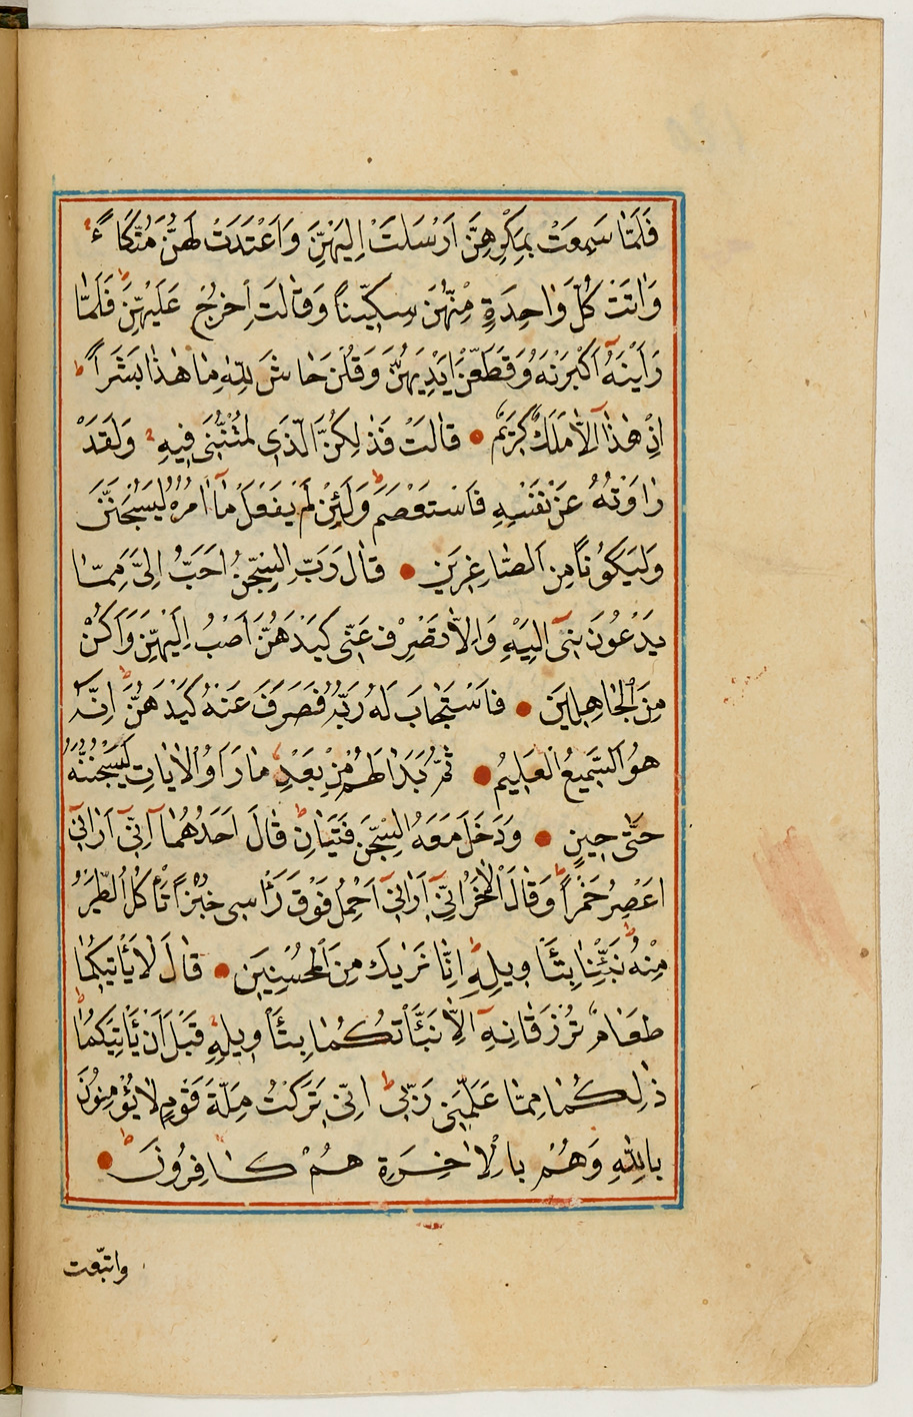 فَلَمَّا سَمِعَتْ بِمَكْرِهِنَّ اَرْسَلَتْ اِلَيْهِنَّ وَاَعْتَدَتْ لَهُنَّ مُتَّكَاً
وَاٰتَتْ كُلَّ وَاحِدَةٍ مِنْهُنَّ سِكّٖيناً وَقَالَتِ اخْرُجْ عَلَيْهِنَّ فَلَمَّا
رَاَيْنَهُٓ اَكْبَرْنَهُ وَقَطَّعْنَ اَيْدِيَهُنَّ وَقُلْنَ حَاشَ لِلّٰهِ مَا هٰذَا بَشَراً
اِنْ هٰذَٓا اِلَّا مَلَكٌ كَرِيمٌ قَالَتْ فَذٰلِكُنَّ الَّذِى لُمْتُنَّنِى فِيهِ وَلَقَدْ
رَاوَدْتُهُ عَنْ نَفْسِهِ فَاسْتَعْصَمَ وَلَئِنْ لَمْ يَفْعَلْ مَٓا اٰمُرُهُ لَيُسْجَنَنَّ
وَلَيَكُوناً مِنَ الصَّاغِرِينَ قَالَ رَبِّ السِّجْنُ اَحَبُّ اِلَىَّ مِمَّا
يَدْعُونَنِىٓ اِلَيْهِ وَاِلَّا تَصْرِفْ عَنِّى كَيْدَهُنَّ اَصْبُ اِلَيْهِنَّ وَاَكُنْ
مِنَ الْجَاهِلِينَ فَاسْتَجَابَ لَهُ رَبُّهُ فَصَرَفَ عَنْهُ كَيْدَهُنَّ اِنَّهُ
هُوَ السَّمِيعُ الْعَلِيمُ ثُمَّ بَدَا لَهُمْ مِنْ بَعْدِ مَا رَاَوُا الْاٰيَاتِ لَيَسْجُنُنَّهُ
حَتّٰى حِينٍ وَدَخَلَ مَعَهُ السِّجْنَ فَتَيَانِ قَالَ اَحَدُهُمَٓا اِنِّىٓ اَرٰينِىٓ
اَعْصِرُ خَمْراً وَقَالَ الْاٰخَرُ اِنِّىٓ اَرٰينِىٓ اَحْمِلُ فَوْقَ رَاْسِى خُبْزاً تَاْكُلُ الطَّيْرُ
مِنْهُ نَبِّئْنَا بِتَاْوِيلِهِ اِنَّا نَرٰيكَ مِنَ الْمُحْسِنِينَ قَالَ لَا يَاْتِيكُمَا
طَعَامٌ تُرْزَقَانِهِٓ اِلَّا نَبَّاْتُكُمَا بِتَاْوِيلِهِ قَبْلَ اَنْ يَاْتِيَكُمَا
ذٰلِكُمَا مِمَّا عَلَّمَنِى رَبِّى اِنِّى تَرَكْتُ مِلَّةَ قَوْمٍ لَا يُؤْمِنُونَ
بِاللّٰهِ وَهُمْ بِالْاٰخِرَةِ هُمْ كَافِرُونَ
واتبعت